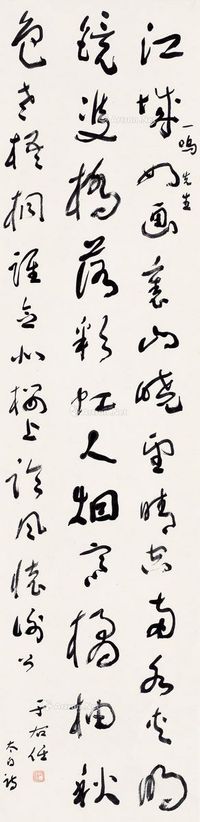 一鳴先生
江城如画裏山曉望晴空兩水夾明
鏡雙橋落彩虹人烟寒橘柚秋
色老梧桐誰念北樓上臨風懷謝公
于右任
太白詩